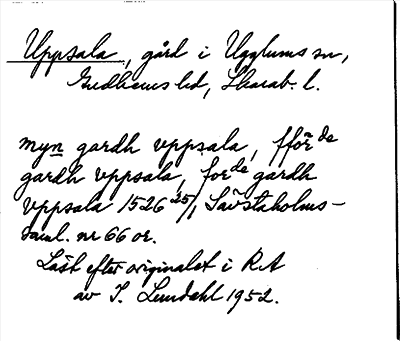 Uppsala, gård i Ugglums sn,
Gudhems hd, Skarab. l.
myn gardh vppsala, fför de
gardh vppsala, for de gardh
vppsala 1526 25/, Säfstaholms-
saml. nr 66 or.
Läst efter originalet i RA
av I. Lundahl 1952.